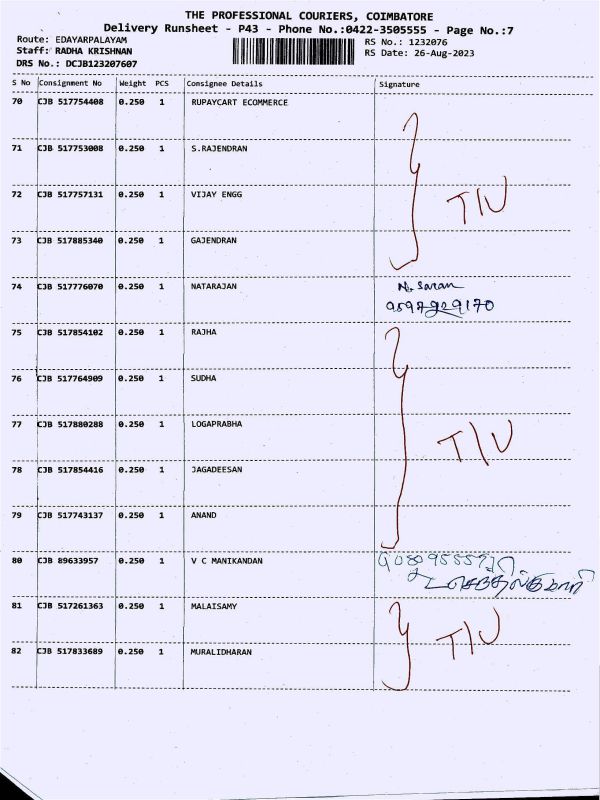 THE PROFESSIONAL COURIERS, COIMBATORE
Delivery Runsheet - P43 - Phone No.:0422-3505555 - Page No.:7
Route: EDAYARPALAYAM RS No.: 1232076
Staff: RADHA KRISHNAN RS Date: 26-Aug-2023
DRS No.: DCJB123207607
S No Consignment No Weight PCS Consignee Details Signature
70 CJB 517754408 0.250 1 RUPAYCART ECOMMERCE
71 CJB 517753008 0.250 1 S.RAJENDRAN
72 CJB 517757131 0.250 1 VIJAY ENGG T/U
73 CJB 517885340 0.250 1 GAJENDRAN
74 CJB 517776070 0.250 1 NATARAJAN N. Saran
75 CJB 517854102 0.250 1 RAJHA
76 CJB 517764909 0.250 1 SUDHA
77 CJB 517880288 0.250 1 LOGAPRABHA T/U
78 CJB 517854416 0.250 1 JAGADEESAN
79 CJB 517743137 0.250 1 ANAND
80 CJB 89633957 0.250 1 V C MANIKANDAN
81 CJB 517261363 0.250 1 MALAISAMY T/U
82 CJB 517833689 0.250 1 MURALIDHARAN